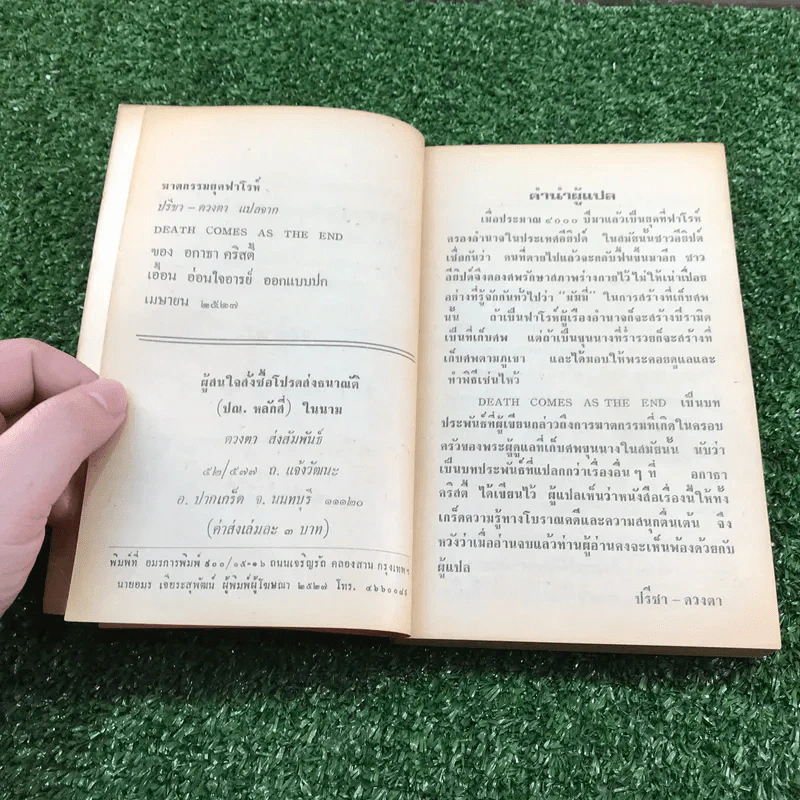 ฆาตกรรมยุคฟาโรห์
ปรีชา – ดวงตา แปลจาก
DEATH COMES AS THE END
ของ อกาธา คริสตี้
เอื้อน อ่อนใจอารย์ ออกแบบปก
เมษายน ๒๕๒๗
ผู้สนใจสั่งซื้อโปรดส่งธนาณัติ
(ปณ. หลักสี่) ในนาม
ดวงตา ส่งสัมพันธ์
๕๒/๕๗๗ ถ. แจ้งวัฒนะ
อ. ปากเกร็ด จ. นนทบุรี ๑๑๑๒๐
(ค่าส่งเล่มละ ๓ บาท)
พิมพ์ที่ อมรการพิมพ์ ๔๐๐/๐๕-๑๖ ถนนเจริญรัถ คลองสาน กรุงเทพฯ
นายอมร เจียระสุพัฒน์ ผู้พิมพ์ผู้โฆษณา ๒๕๒๗ โทร.
คำนำผู้แปล
เมื่อประมาณ ๔๐๐๐ ปีมาแล้วเป็นยุคที่ฟาโรห์
ครองอำนาจในประเทศอียิปต์ ในสมัยนั้นชาวอียิปต์
เชื่อกันว่า คนที่ตายไปแล้วจะกลับฟื้นขึ้นมาอีก ชาว
อียิปต์จึงดองศพรักษาสภาพร่างกายไว้ไม่ให้เน่าเปื่อย
อย่างที่รู้จักกันทั่วไปว่า “มัมมี่” ในการสร้างที่เก็บศพ
นั้น ถ้าเป็นฟาโรห์ผู้เรืองอำนาจก็จะสร้างปิรามิด
เป็นที่เก็บศพ แต่ถ้าเป็นขุนนางที่ร่ำรวยก็จะสร้างที่
เก็บศพตามภูเขา และได้มอบให้พระคอยดูแลและ
ทำพิธีเซ่นไหว้
DEATH COMES AS THE END เป็นบท
ประพันธ์ที่ผู้เขียนกล่าวถึงการฆาตกรรมที่เกิดในครอบ
ครัวของพระผู้ดูแลที่เก็บศพขุนนางในสมัยนั้น นับว่า
เป็นบทประพันธ์ที่แปลกกว่าเรื่องอื่นๆ ที่ อกาธา
คริสตี้ ได้เขียนไว้ ผู้แปลเห็นว่าหนังสือเรื่องนี้ให้ทั้ง
เกร็ดความรู้ทางโบราณคดีและความสนุกตื่นเต้น จึง
หวังว่าเมื่ออ่านจบแล้วท่านผู้อ่านคงจะเห็นพ้องด้วยกับ
ผู้แปล
ปรีชา – ดวงตา